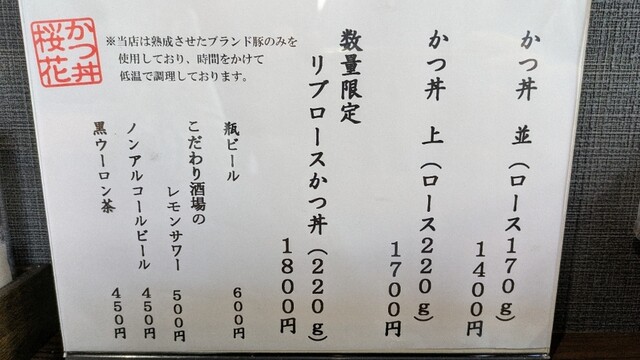 かつ丼 並（ロース170g）
1400円
かつ丼 上（ロース220g）
1700円
数量限定
リブロースかつ丼（220g）
1800円
瓶ビール 600円
こだわり酒場の
レモンサワー 500円
ノンアルコールビール 450円
黒ウーロン茶 450円
かつ丼
桜花
※当店は熟成させたブランド豚のみを
使用しており、時間をかけて
低温で調理しております。